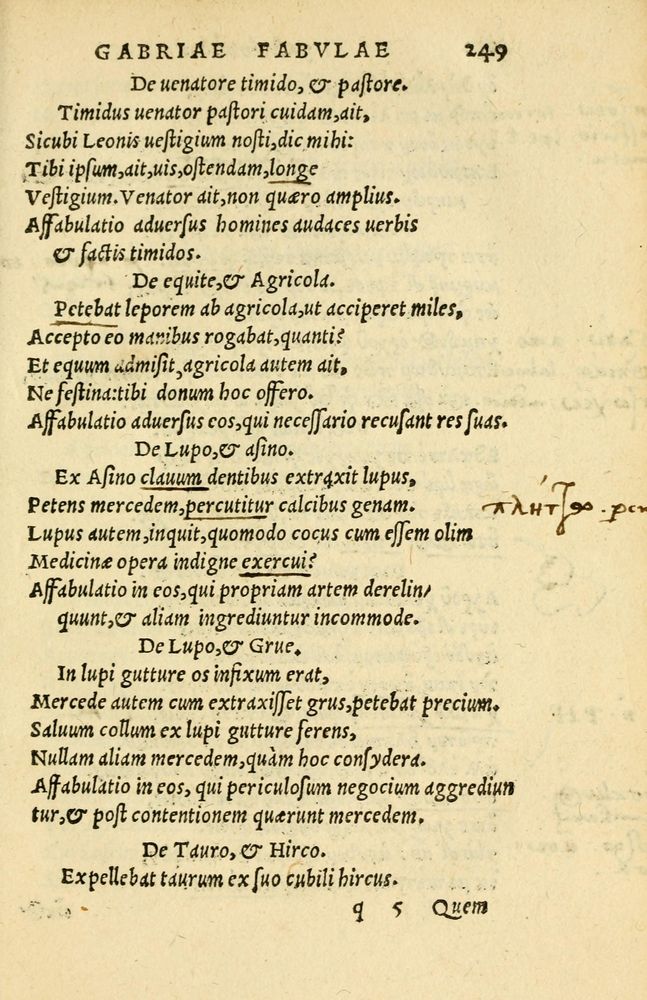 GABRIAE FABVLAE 249
De uenatore timido, & pastore.
Timidus uenator pastori cuidam, ait,
Sicubi Leonis uestigium nosti, dic mihi:
Tibi ipsum, ait, uis, ostendam, longe
Vestigium. Venator ait, non quæro amplius.
Affabulatio aduersus homines audaces uerbis
& factis timidos.
De equite, & Agricola.
Petebat leporem ab agricola, ut acciperet miles,
Accepto eo manibus rogabat, quanti?
Et equum admisit, agricola autem ait,
Ne festina: tibi donum hoc offero.
Affabulatio aduersus eos, qui necessario recusant res suas.
De Lupo, & asino.
Ex Asino clauum dentibus extraxit lupus,
Petens mercedem, percutitur calcibus genam.
πλήτζω . per
Lupus autem, inquit, quomodo cocus cum essem olim
Medicinæ opera indigne exercui?
Affabulatio in eos, qui propriam artem derelin/
quunt, & aliam ingrediuntur incommode.
De Lupo, & Grue.
In lupi gutture os infixum erat,
Mercede autem cum extraxisset grus, petebat precium.
Saluum collum ex lupi gutture ferens,
Nullam aliam mercedem, quàm hoc consydera.
Affabulatio in eos, qui periculosum negocium aggrediun
tur, & post contentionem quærunt mercedem.
De Tauro, & Hirco.
Expellebat taurum ex suo cubili hircus.
q 5 Quem